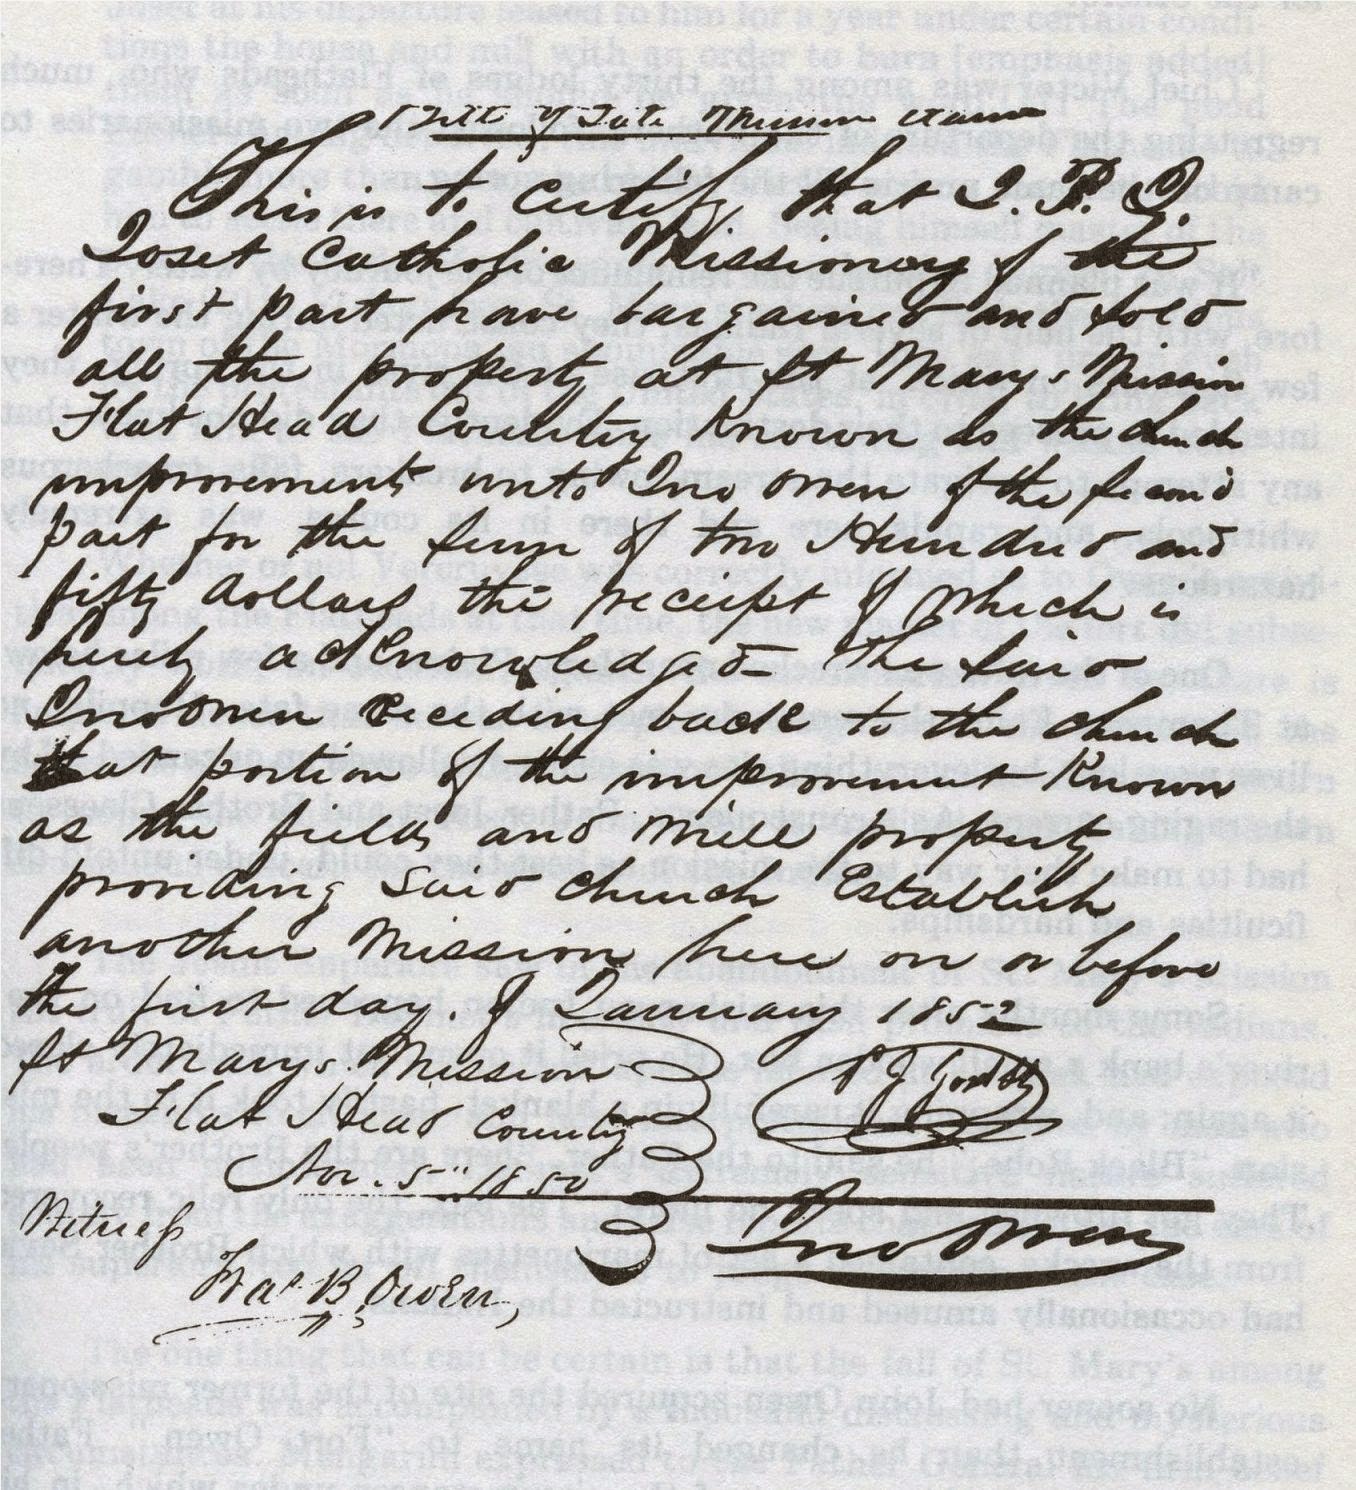 Bill of Sale Mission
This is to Certify that I. P. J.
Joset Catholic Missionary of the
first part have bargained and sold
all the property at St Marys Mission
Flat Head Country Known as the church
improvements unto Jno Owen of the second
part for the sum of two Hundred and
fifty dollars the receipt of which is
hereby acdknowledged The said
Jno Owen receding back to the church
that portion of the improvement Known
as the fields and mill property
providing said church Establish
another Mission here on or before
the first day. of January 1852
St Marys. Mission P J
Flat Head County
Nov. 5" 1850
Jno Owen
Witness
Fras B Owen,